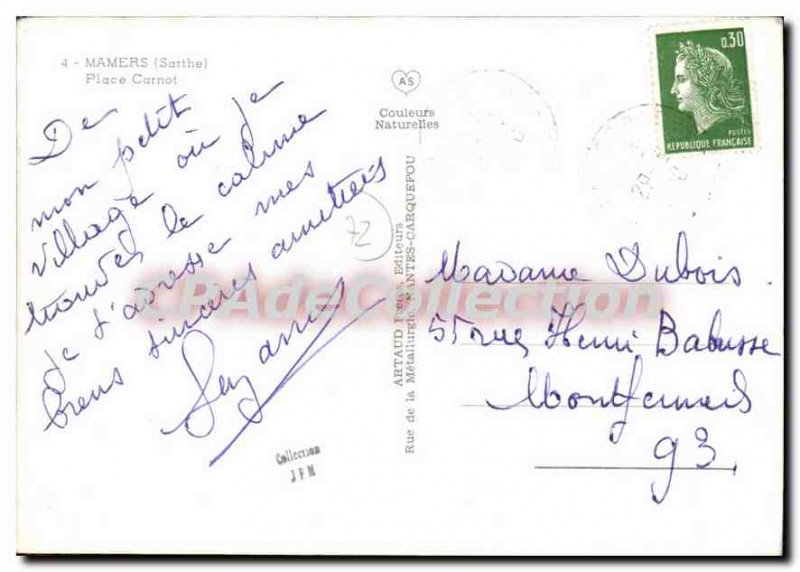 4 - MAMERS (Sarthe)
Place Carnot
De
mon petit
village où je
trouves le calme
je t'adresse mes
biens sincères amitiés
Suzanne
72
Collection
JFM
AS
Couleurs
Naturelles
ARTAUD Frères, Editeurs
Rue de la Métallurgie, NANTES-CARQUEFOU
0,30
POSTES
REPUBLIQUE FRANÇAISE
Madame Dubois
55 rue Henri Babusse
Montfermeil
93
CPAdeCollection